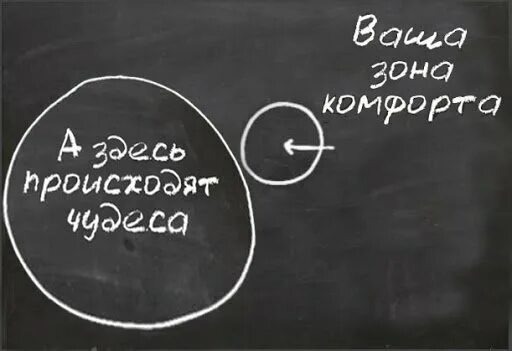 Ваша
зона
комфорта
А здесь
происходят
чудеса